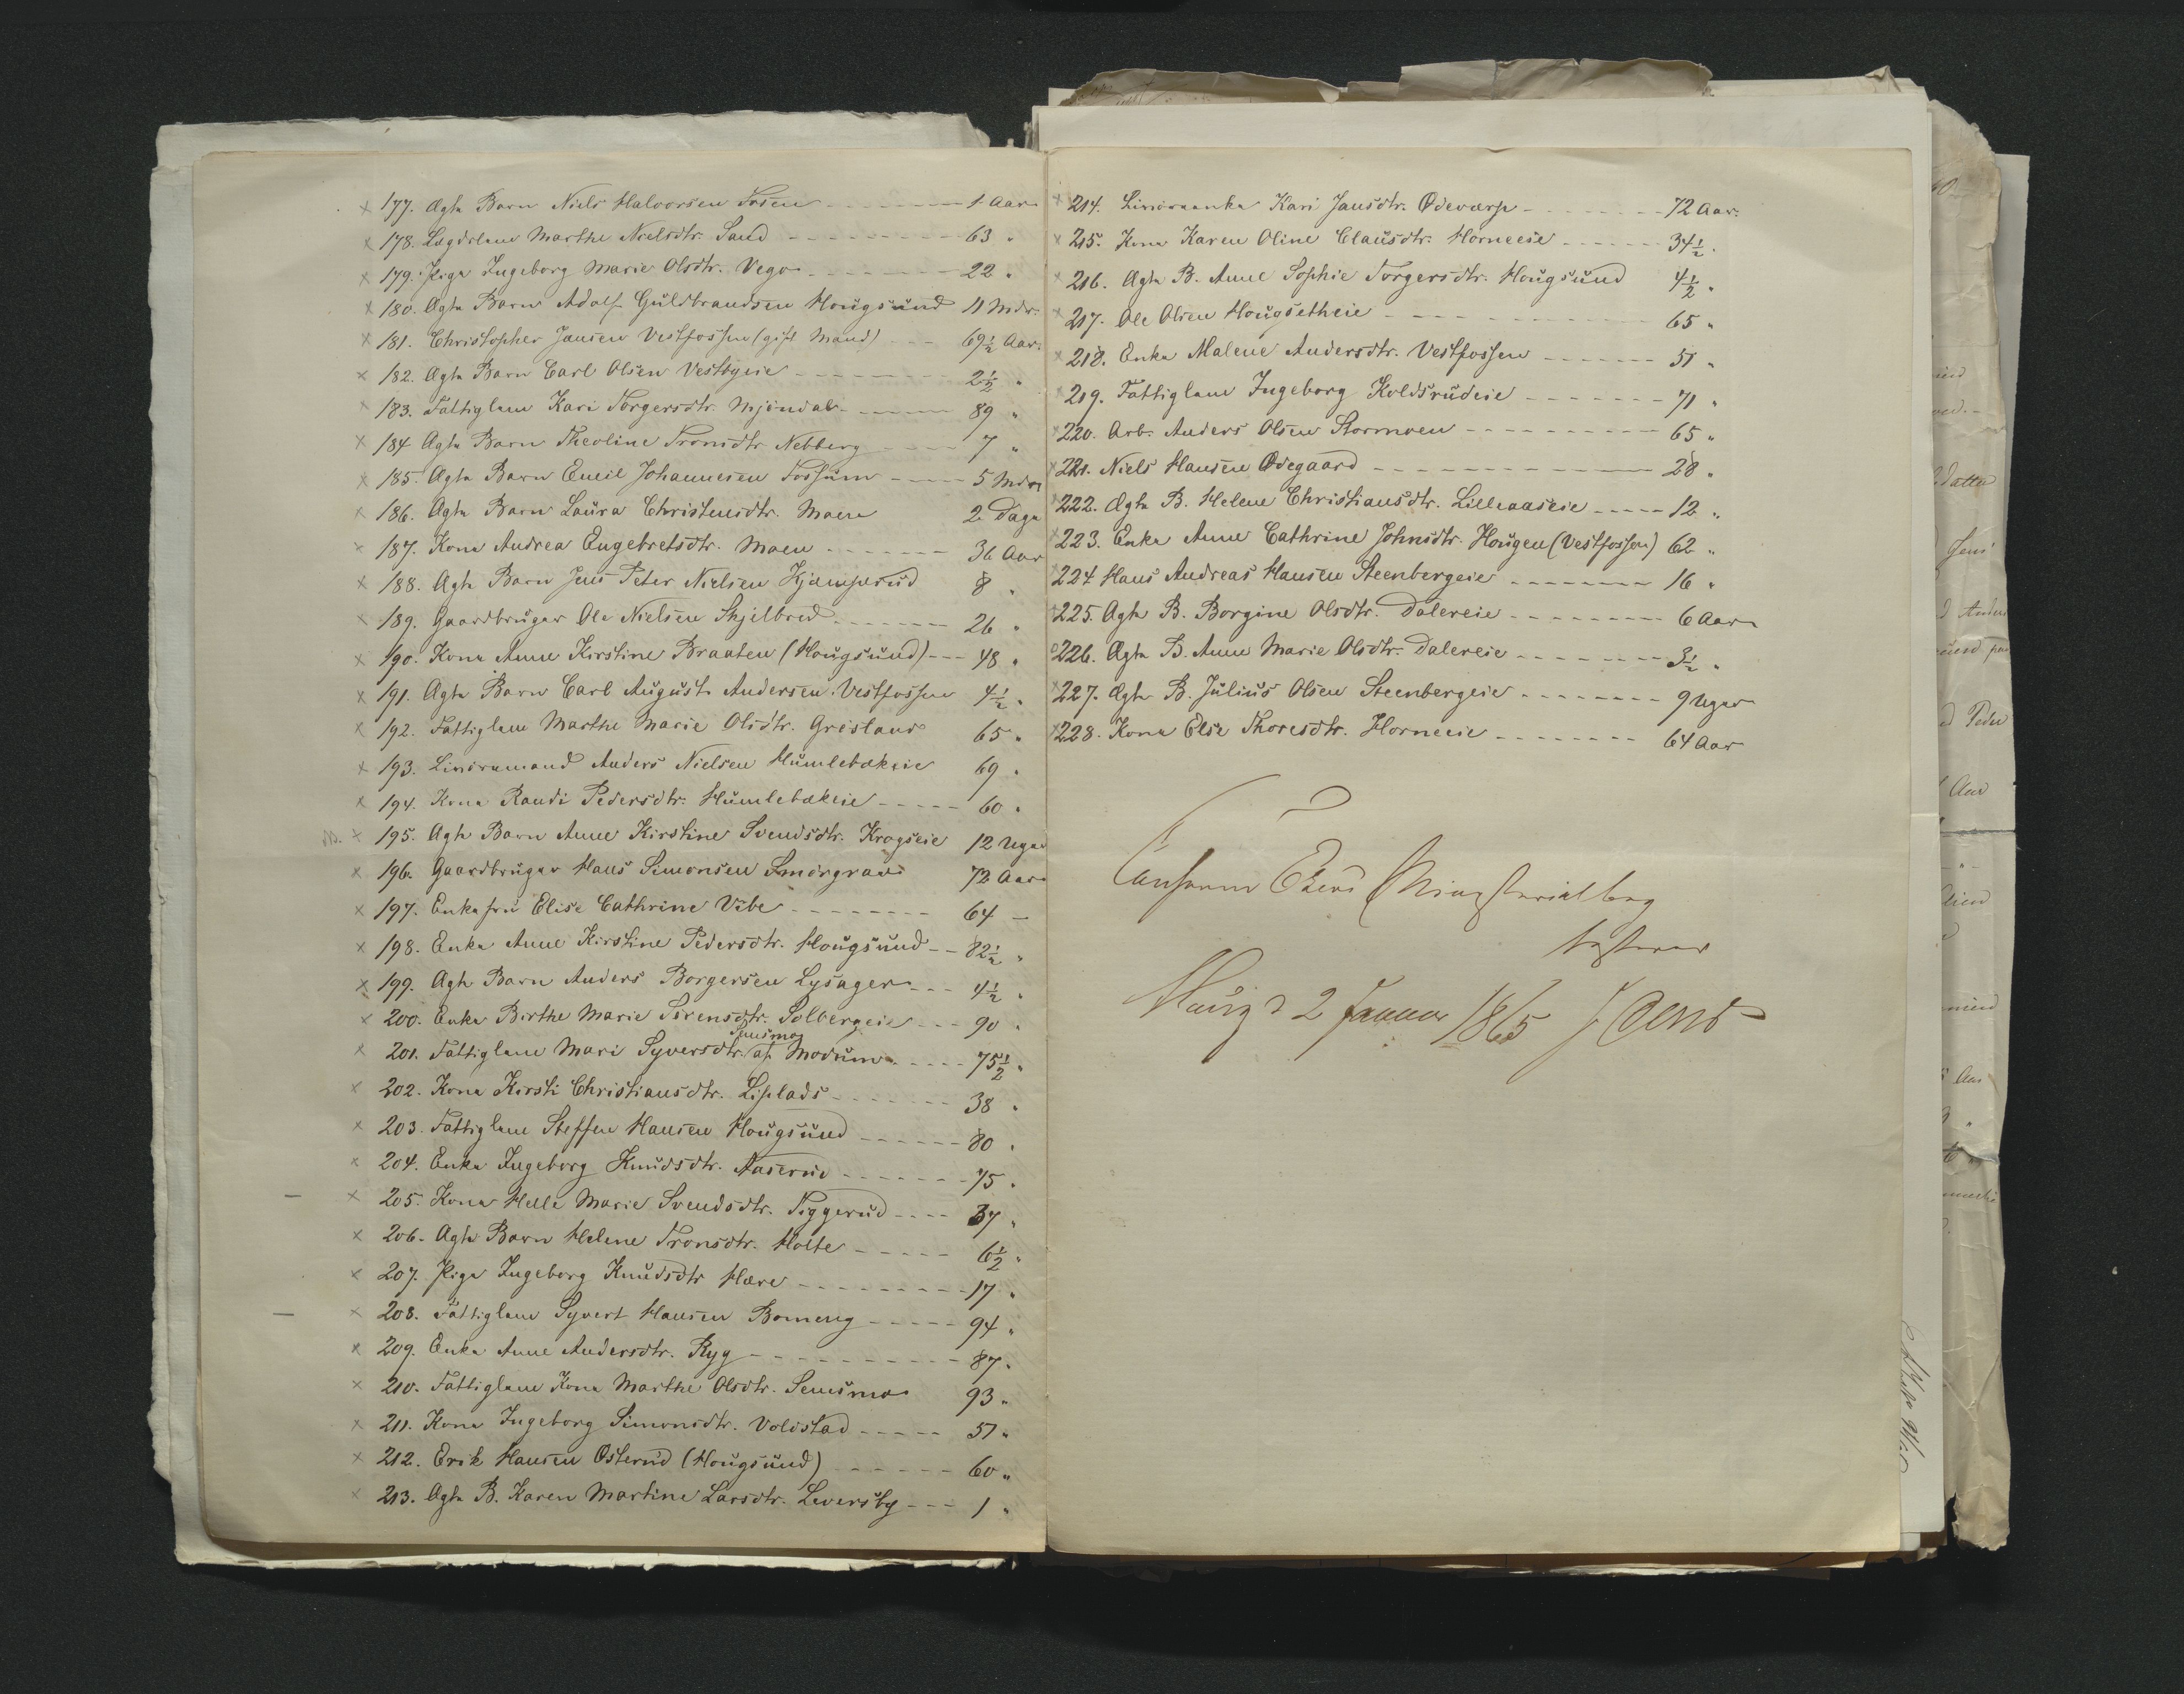 177. Ægte Barn Niels Halvorsen Fosen - - - 1 Aar
178. Lægdslem Marthe Nielsdtr. Sand - - - 63 "
179. Pige Ingeborg Marie Olsdtr. Vego - - - 22 "
180. Ægte Barn Adolf Guldbrandsen Hougsund 11 Mdr.
181. Christopher Jansen Vestfossen (gift Mand) - - - 69½ Aar.
182. Ægte Barn Carl Olsen Vestbyeie - - - 2½ "
183. Fattiglem Kari Torgersdtr. Mjöndal - - - 89 "
184 Ægte Barn Theoline Tronsdtr. Nebberg - - - 7 "
185. Ægte Barn Emil Johannesen Fossum - - - 5 Mdr
186. Ægte Barn Laura Christensdtr. Moen 2 Dage
187. Kone Andrea Engebretsdtr. Moen - - - 36 Aar
188. Ægte Barn Jens Peter Nielsen 8 "
189. Gaardbruger Ole Nielsen Skjelbred - - - 26 "
190. Kone Anne Kirstine Braaten (Hougsund) - - - 48 "
191. Ægte Barn Carl August Andersen Vestfossen 4½ "
192. Fattiglem Marthe Marie Olsdtr. Grisland 65 "
193. Inderstmand Anders Nielsen Humlebækeie 69 "
194. Kone Randi Pedersdtr. Humlebækeie - - - 60 "
NB. 195. Ægte Barn Anne Kirstine Svendsdtr. Krogseie 12 Uger
196. Gaardbruger Hans Simonsen Smörgrav 72 Aar
197. Enkefru Elise Cathrine Vibe - - - 64 -
198. Enke Anne Kirstine Pedersdtr. Hougsund - - 82½ "
199. Ægte Barn Anders Borgersen Lysager - - - 4½ "
200. Enke Birthe Marie Sörensdtr. Solbergeie - - - 90 "
Semsmo
201. Fattiglem Mari Syversdtr. af Modum - - - 75½ "
202. Kone Kirsti Christiansdtr. Liplads - - - 38 "
203. Fattiglem Steffen Hansen Hougsund - - - 80 "
204. Enke Ingeborg Knudsdtr. Aaserud - - - 75 "
205. Kone Helle Marie Svendsdtr. Tiggerud - - - 37 "
206. Ægte Barn Helene Tronsdtr. Holte - - - 6½ "
207. Pige Ingeborg Knudsdtr Hære - - - 17 "
208. Fattiglem Syvert Hansen Bomeng - - - 94 "
209. Enke Anne Andersdtr. Ryg - - - 87 "
210. Fattiglem Kone Marthe Olsdtr. Semsmo 93 "
211. Kone Ingeborg Simonsdtr. Voldstad - - - 51 "
212. Erik Hansen Österud (Hougsund) - - - 60 "
213. Ægte B. Karen Martine Larsdtr. Leversby - - - 1 "
214. Kari Jansdtr. Ödeværp - - - 72 Aar.
215. Kone Karen Oline Clausdtr. Horneeie - - - 34½ "
216. Ægte B. Anne Sophie Torgersdtr. Hougsund 4½ "
217. Ole Olsen Hougsetheie - - - 65 "
218. Enke Malene Andersdtr. Vestfossen - - - 51 "
219. Fattiglem Ingeborg Koldsrudeie - - - 71 "
220. Arb. Anders Olsen Stormoen - - - 65 "
221. Niels Hansen Ödegaard - - - 28 "
222. Ægte B. Helene Christiansdtr. Lilleaaseie - - - 12 "
223. Enke Anne Cathrine Johnsdtr. Hougen (Vestfossen) 62 "
224 Hans Andreas Hansen Steenbergeie - - - 16 "
225. Ægte B. Borgine Olsdtr. Dalereie - - - 6 Aar
226. Ægte B. Anne Marie Olsdtr. Dalereie - - - 3½ "
227. Ægte B. Julius Olsen Steenbergeie - - - 9 Uger
228. Kone Else Thoresdtr. Horneeie - - - 64 Aar
Conform Ekers Ministerialbog
testerer
Houg d 2 Januar 1865